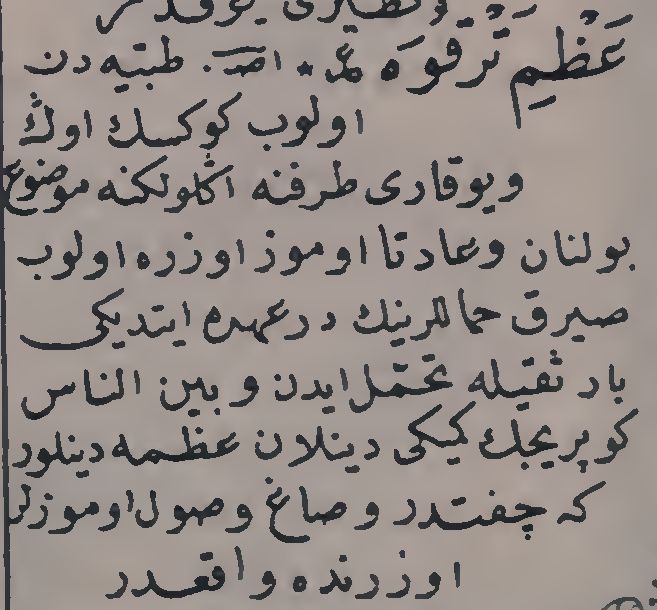 عَظْمِ تَرْقُوَه عد * امد. طبیه دن
اولوب کوکسك اوڭ
ویوقاری طرفنه اڭلولکنه موضوع
بولنان وعادتا اوموز اوزره اولوب
صیرق حماللرینك درعهده ایتدیکی
بار ثقیله تحمّل ایدن و بین الناس
کوپریجك کمیکی دینلان عظمه دینلور
که چفتدر و صاغ وصول اوموزلر
اوزرنده واقعدر